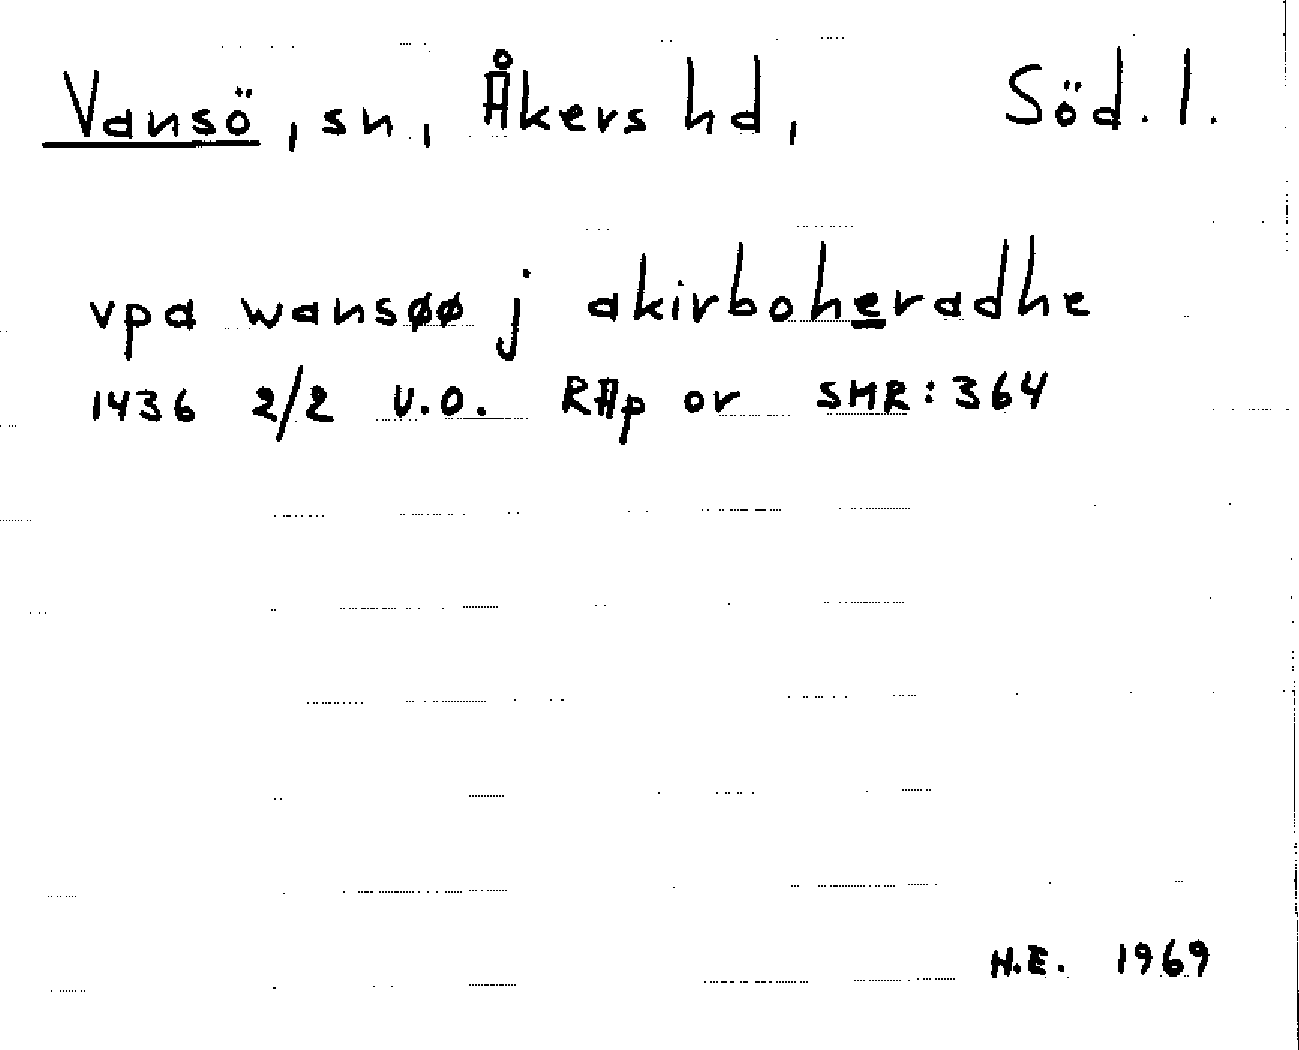 Vansö, sn, Åkers hd, Söd. l.
vpa wansøø j akirboheradhe
1436 2/2 U.O. RAp or SMR:364
H.E. 1969